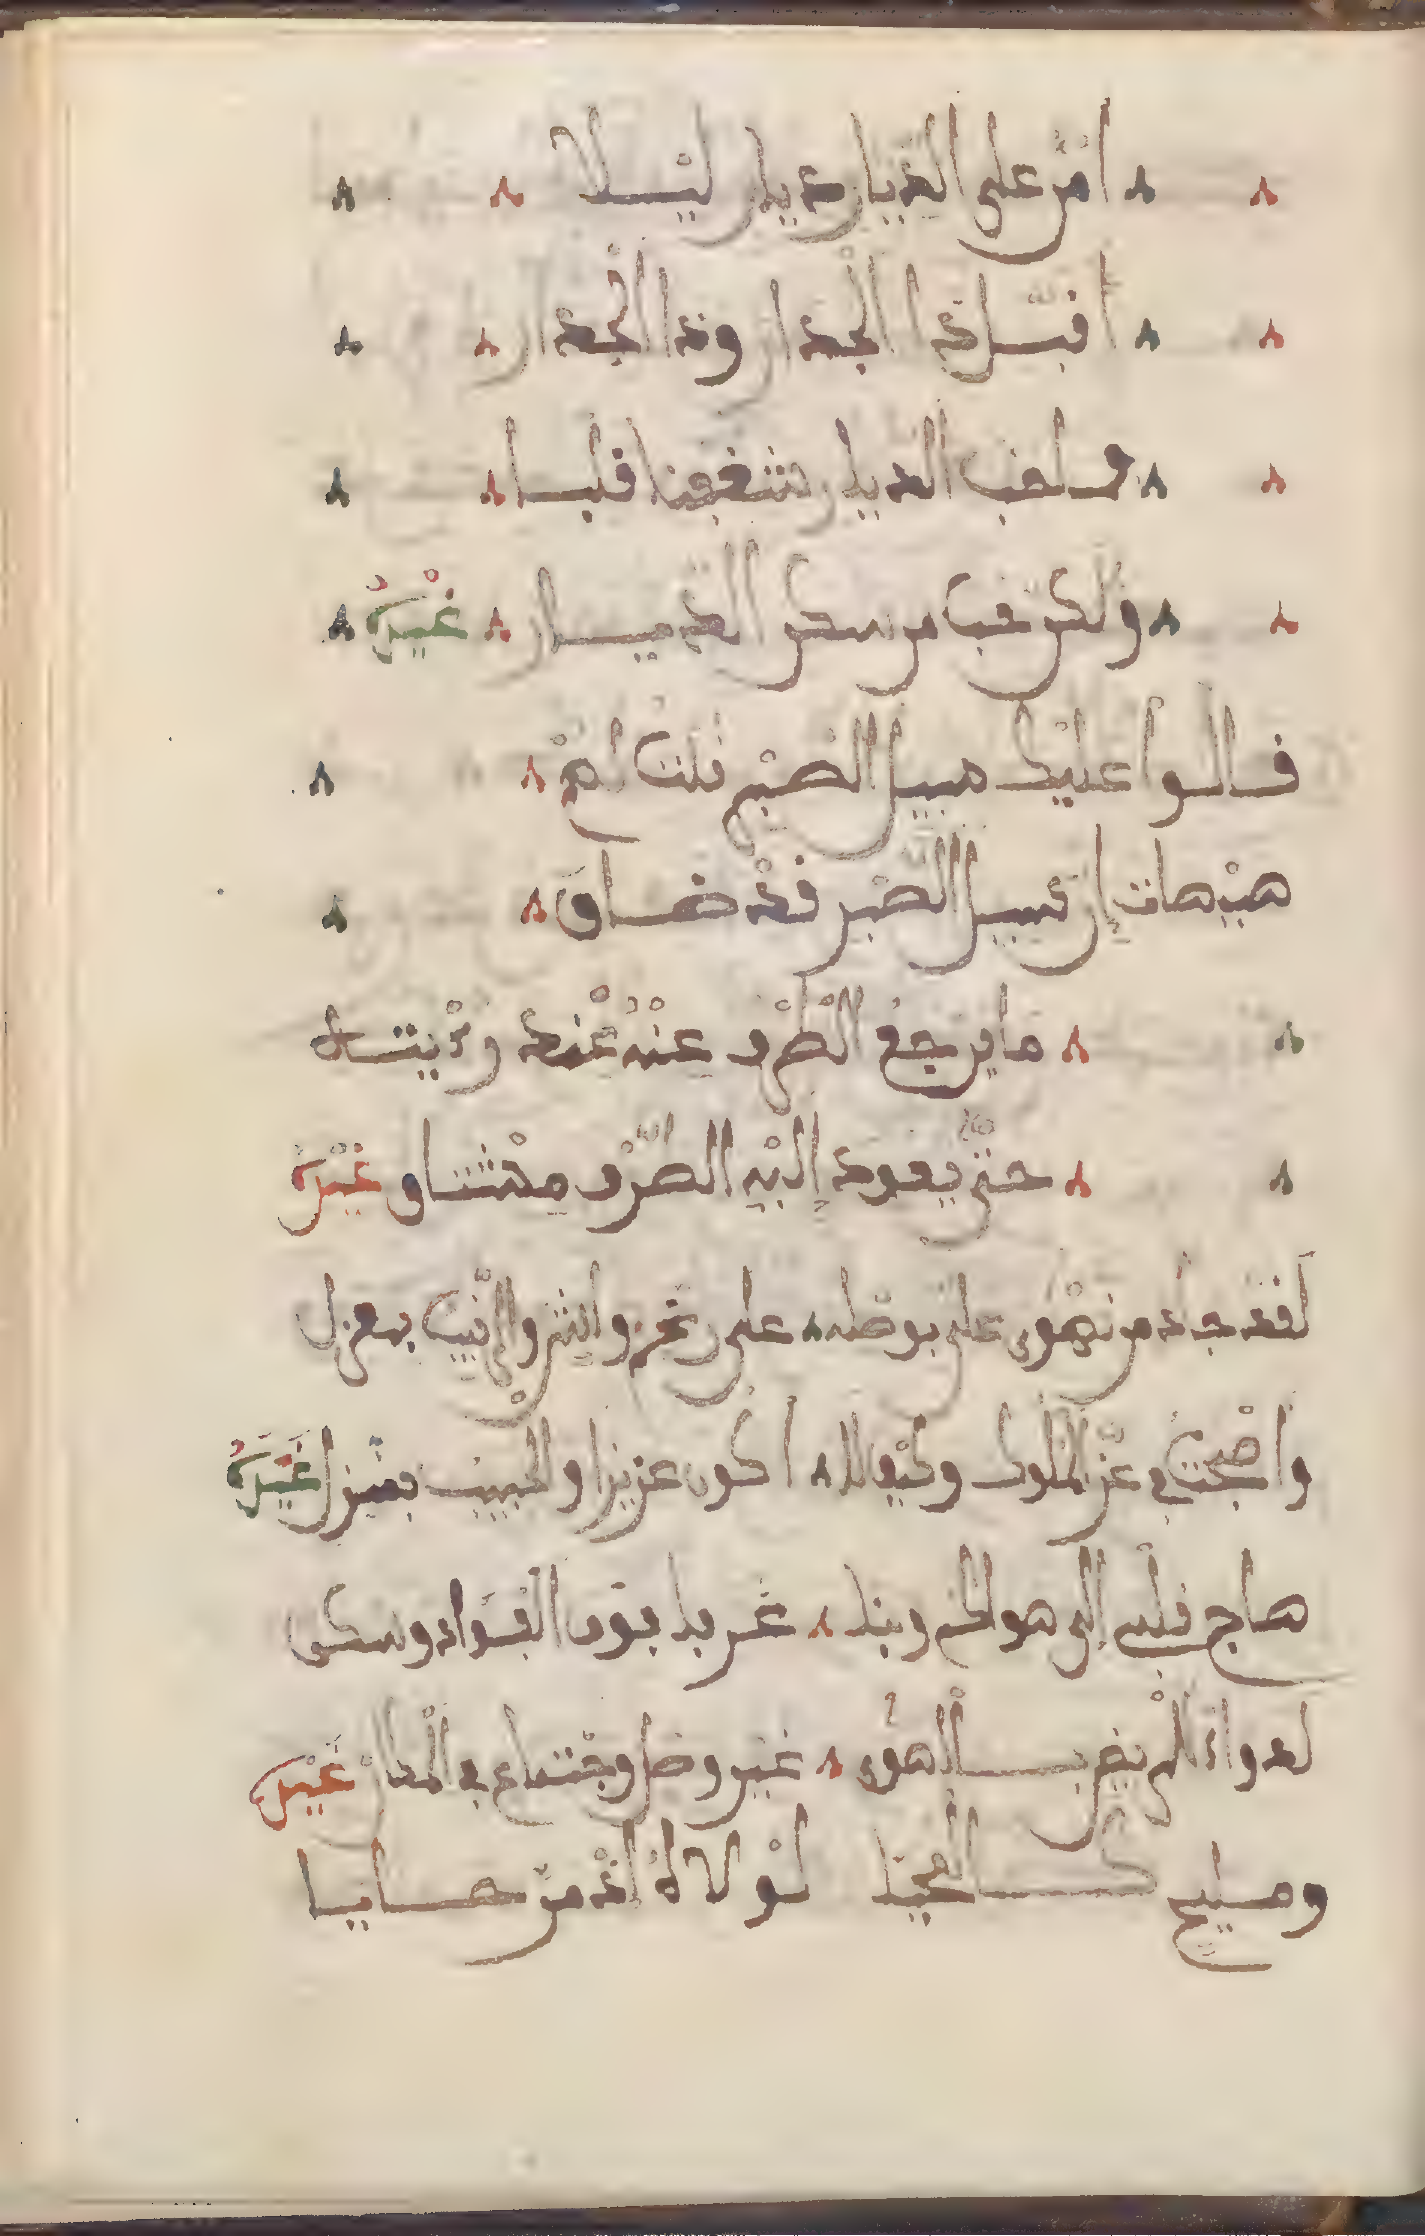 أمر على الديار ديار ليلا
اقبل ذا الجدار وذا الجدار
وما حب الديار شغفنا قلبا
ولكن حب من سكن الديار غيره
قالوا عليك سبيل الصبر قلت لهم
هيهات إن سبيل الصبر قد ضاق
ما يرجع الطرف عنه عند رؤيته
حتى يعود إليه الطرف مشتاق غيره
لقد جاد من نهوى علي بوصله على رغم واش والرقيب بمعزل
وأصبحت في عز الملوك وكيف لا أكون عزيزا والحبيب بمنزل غيره
هاج قلبي إلى هو الخ غريدا بقوت الفؤاد وسكن
لم الهوى غير وصل وجتماع في غيره
ومليح لولاه من